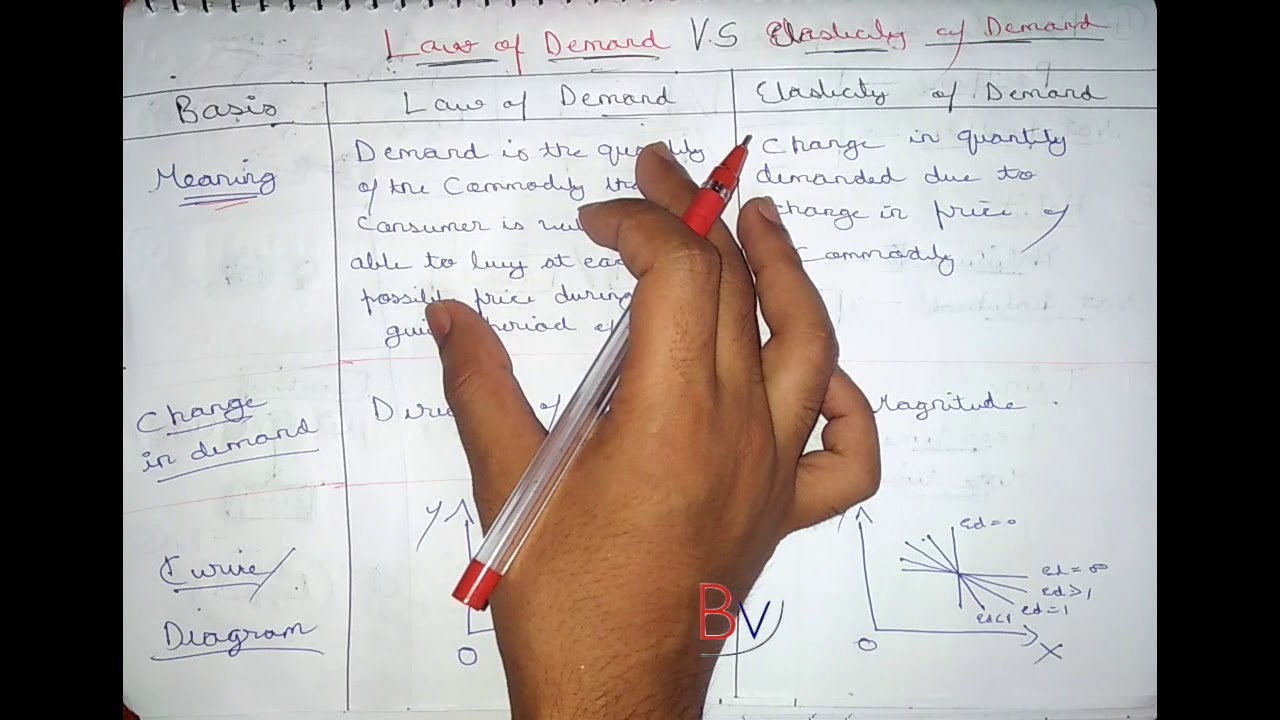 Law of Demand V.S Elasticity of Demand
Basis
Law of Demand
Elasticity of Demand
Meaning
Demand is the quantity
of the Commodity
Consumer is
able to buy at
possible price during
period
Change in quantity
demanded due to
change in price of
Commodity
Change
in demand
of
Magnitude
Curve/
Diagram
Y
O
Y
ed=0
ed=∞
ed>1
ed=1
ed<1
O
X
BV